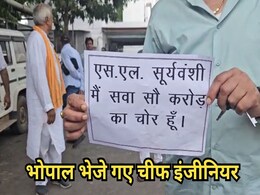 एस.एल. सूर्यवंशी
मैं सवा सौ करोड़
का चोर हूँ।
भोपाल भेजे गए चीफ इंजीनियर